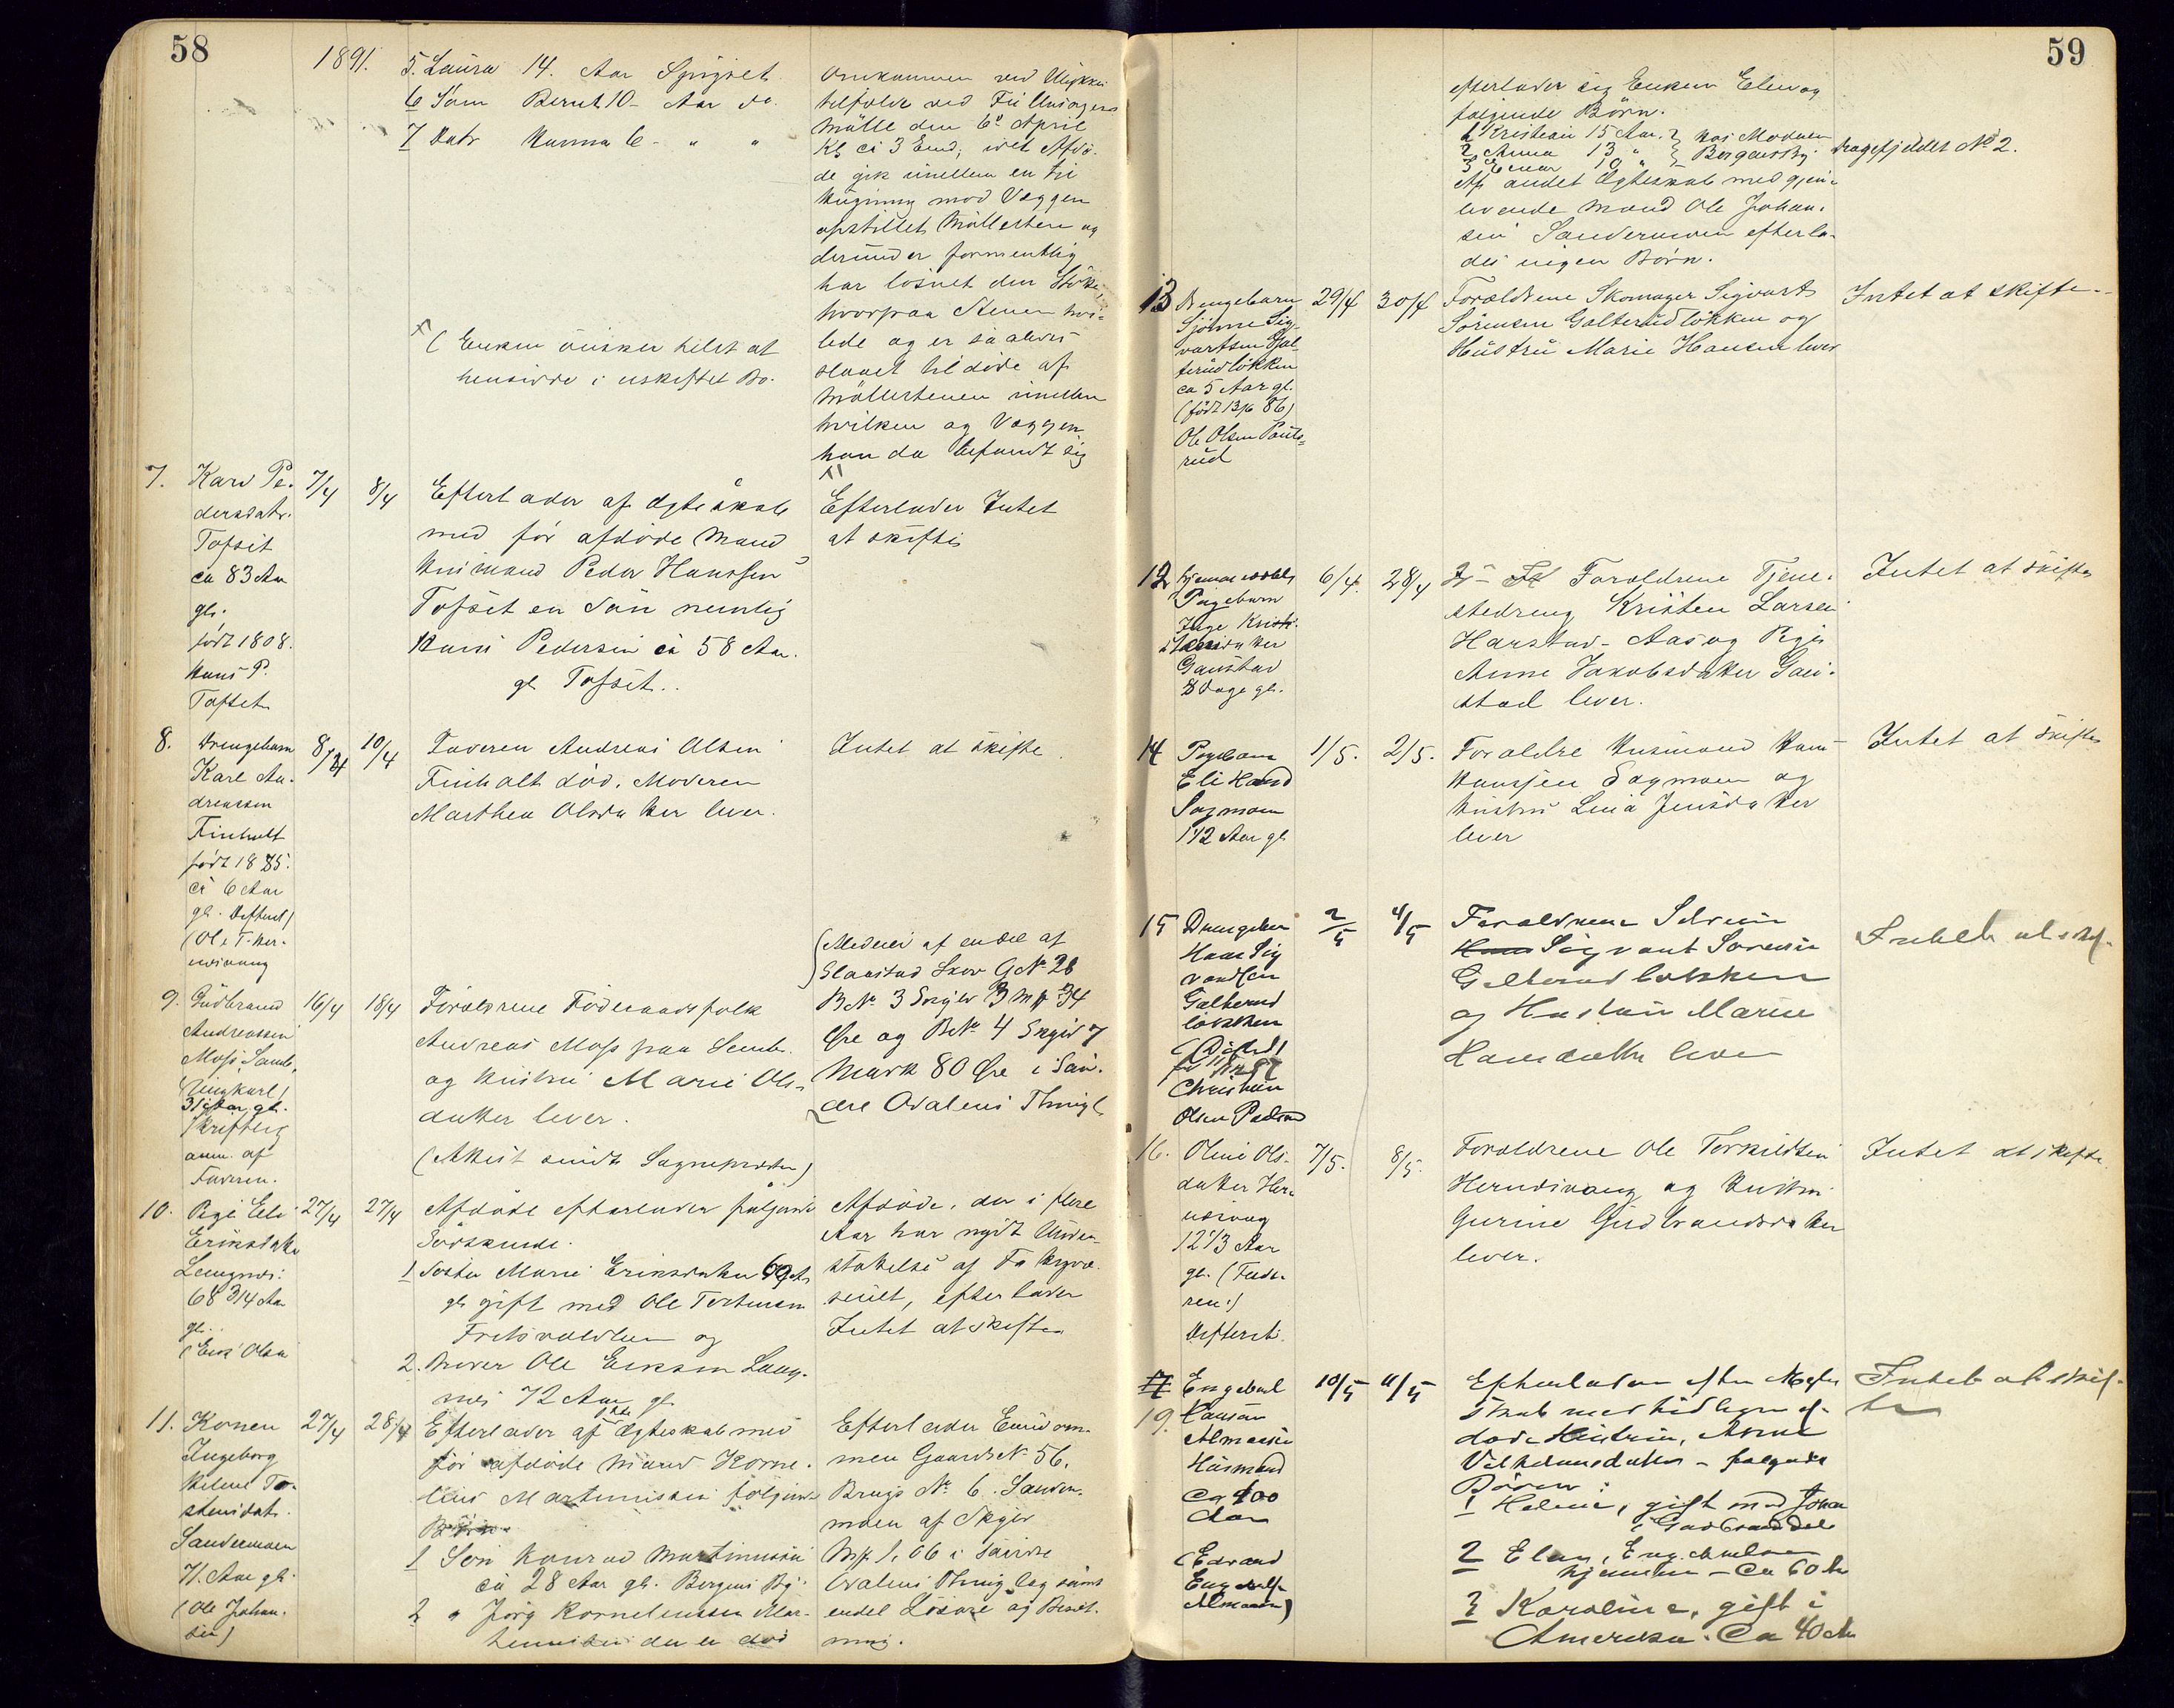 58
1891.
5. Laura 14. Aar Spigset
6 Søn Bernt 10 - Aar do.
7 Datr Hanna 6 - " "
x ( Enken ønsker helst at
hensidde i uskiftet Bo.
omkommen ved Ulykkes
tilfælde ved
Mølle den 6te April
Kl ca 3 Emd; idet Afdø-
de gik imellem en til
Hugning mod Væggen
opstillet Møllesten og
derunder formentlig
har løsnet den Støtte,
hvorpaa Stenen hvi-
lede og er saaledes
slaaet tildøde af
Møllestenen imellem
hvilken og Væggen
han da befandt sig
x)
7. Kari Pe-
dersdatr.
Tofset
ca 83 Aar
gl.
født 1808.
Hans P.
Tofset
7/4 8/4
Efterlader af Ægteskab
med før afdøde Mand
Husmand Peder Hanssen
Tofset en Søn nemlig
Hans Pedersen ca 58 Aar
gl Tofset..
Efterlader Intet
at skifte
8. Drengebarn
Karl An-
dreassen
Finholt
født 1885.
ca 6 Aar
gl. Difterit)
(Ole T. Her-
nesvang
8/4 10/4
Faderen Andreas Olsen
Finholt død. Moderen
Marthea Olsdatter lever.
Intet at skifte.
9. Gudbrand
Andreassen
Moss Semb,
Ungkarl)
31 Aar gl.
Skriftlig
anm. af
Faderen.
16/4 18/4
Forældrene Føderaadsfolk
Andreas Moss paa Semb
og Hustru Marie Ols-
datter lever.
(Attest sendt Sognepresten)
(Medeier af endel af
Slaastad Skov G No 28
B No 3 Skyld 3 Mk 34
Øre og B No 4 Skyld 7
Mark 80 Øre i Søn-
dre Odalens Thingl
10. Pige Eli
Eriksdatter
Langnes.
68 3/4 Aar
gl.
(Erik Olsen
27/4 27/4
Afdøde efterlader følgende
Sødskende.
1 Søster Marie Eriksdatter 69 Aar
gl gift med Ole Torstensen
og
2. Broder Ole Eriksen Lang-
nes 72 Aar gl
Afdøde, der i flere
Aar har nydt Under-
støttelse af Fattigvæ-
senet, efterlader
Intet at skifte
11. Konen
Ingeborg
Helene To-
stensdat.
Sandermoen
71. Aar gl.
(Ole Johan-
sen)
27/4 28/4
Efterlader af 1ste Ægteskab med
før afdøde Mand Korne-
lius Martinussen følgende
Børn
1 Søn Konrad Martinussen
ca 28 Aar gl. Bergens By.
2 " Jørg Kornelius
der er død
Efterlader Eiendom-
men Gaards No 56.
Brugs No 6. Sander-
moen af Skyld
Mk. 1,06 i søndre
Odalens Thinglag samt
endel Løsøre og Besæt-
ning.
59
efterlader sig Enken Elen og
følgende Børn.
1 Kristian 15 Aar. } hos Moderen
2 Anna 13 " } Bergens By.
3 Einar 10 "
Dragefjeldet No 2.
Af andet Ægteskab med gjen-
levende Mand Ole Johan-
sen Sandermoen efterla-
des ingen Børn.
13 Drengebarn
Sjønne Sig-
vartsen Gal-
terudløkken
ca 5 Aar gl.
(født 13/6 86)
Ole Olsen Pauls-
rud
29/4 30/4
Forældrene Skomager Sigvart
Sørensen Galterudløkken og
Hustru Marie Hansen lever
Intet at skifte.
12 Hjemmedøbt
Pigebarn
Inge Krist-
iansdatter
Gaustad
8 Dage gl.
6/4. 28/4
Forældrene Tjene-
stedreng Kristen Larsen
Harstad-Aas og Pige
Anne Jakobsdatter Gau-
stad lever.
Intet at skifte
14 Pigebarn
Eli Hansd
Sagmoen
1 1/2 Aar gl
1/5. 2/5.
Forældre Husmand Hans
Hanssen Sagmoen og
Hustru Lina Jensdatter
lever
Intet at skifte
15 Drengebarn
Hans Sig
vartsen
Galterud
løkken
(Difterit)
Christian
Olsen Paulsrud
2/5 4/5
Forældrene
Sigvart Sørensen
Galterudløkken
og Hustru Marie
Hansdatter lever
Intet at skif-
16. Oline Ols-
datter Her-
nesvang
12 1/3 Aar
gl. (Fade-
ren)
Difterit.
7/5. 8/5.
Forældrene Ole Torkildsen
Hernesvang og Hustru
Gurine Gudbrandsdatter
lever.
Intet at skifte.
17
19.
Engebret
Hansen
Almaasen
Husmand
Ca 100
Aar
(Edvard
Engebrets.
Almaasen)
10/5 11/5
Efterlader efter Ægte
skab med tidligere af-
døde Hustru, Anne
Vilhelmsdatter - følgende
Børn:
1 Helene, gift med Johan
i Gudbrandsdal
2 Elen, Eng.
hjemme - Ca 60 Aar
3 Karoline, gift i
Amerika. Ca 40 Aar
Intet at skif-
te